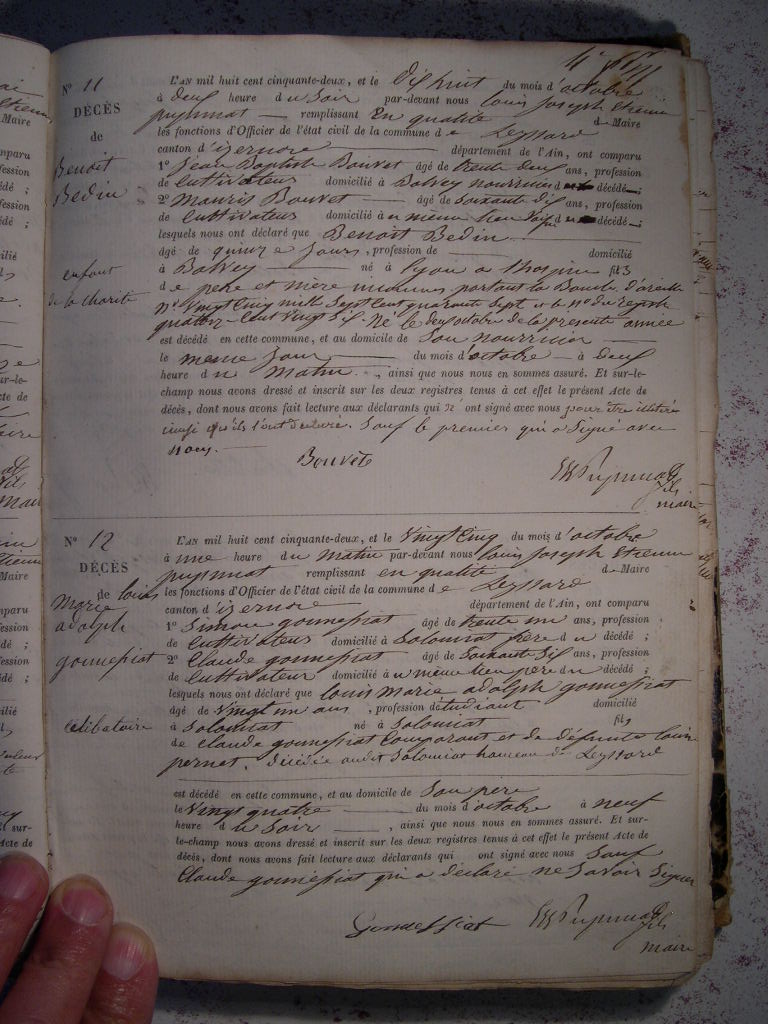 N° 11
DÉCÈS
de
Benoit
Bedin
enfant
de la Charité
L'AN mil huit cent cinquante-deux, et le Dix huit du mois d'octobre
à deux heure du Soir par-devant nous Louis Joseph Etienne
puymat remplissant En qualité de Maire
les fonctions d'Officier de l'état civil de la commune de Leyssard
canton d'izernore département de l'Ain, ont comparu
1° Jean Baptiste Bouvet âgé de trente deux ans, profession
de Cultivateurs domicilié à Bolvey nourricier d décédé
2° Mauris Bouvet âgé de Soixante dix ans, profession
de Cultivateurs domicilié à u même lieu voisin d décédé
lesquels nous ont déclaré que Benoit Bedin
âgé de quinze Jours, profession de domicilié
à Bolvey né à lyon a lhospice fils
de père et mère inconnus portant la Boucle d'oreille
n° Vingt Cinq mill Sept Cent quarante Sept et le N° du registre
quatorze Cent Vingt Six. Né le deux octobre de la présente année
est décédé en cette commune, et au domicile de Son nourricier
le même Jour du mois d'octobre à deux
heure du matin, ainsi que nous nous en sommes assuré. Et sur-le-
champ nous avons dressé et inscrit sur les deux registres tenus à cet effet le présent Acte de
décès, dont nous avons fait lecture aux déclarants qui n' ont signé avec nous pour être illitéré
ainsi qu'ils l'ont déclaré. Sauf le premier qui a Signé avec
nous.
Bouvet
Puymat
fils
maire
N° 12
DÉCÈS
de louis
marie
adolph
gonnessiat
célibataire
L'AN mil huit cent cinquante-deux, et le Vingt Cinq du mois d'octobre
à une heure du matin par-devant nous Louis Joseph Etienne
puymat remplissant en qualité de Maire
les fonctions d'Officier de l'état civil de la commune de Leyssard
canton d'izernore département de l'Ain, ont comparu
1° Simon gonnessiat âgé de trente un ans, profession
de Cultivateurs domicilié à Solomiat frère du décédé ;
2° Claude gonnessiat âgé de Soixante Six ans, profession
de Cultivateur domicilié à u même lieu père du décédé ;
lesquels nous ont déclaré que louis Marie adolph gonnessiat
âgé de Vingt un ans, profession détudiant domicilié
à Solomiat né à Solomiat fils
de Claude gonnessiat Comparant et de défunte louise
pernet. Décédée audit Solomiat hameau de Leyssard
est décédé en cette commune, et au domicile de Son père
le Vingt quatre du mois d'octobre à neuf
heure du Soir, ainsi que nous nous en sommes assuré. Et sur-
le-champ nous avons dressé et inscrit sur les deux registres tenus à cet effet le présent Acte de
décès, dont nous avons fait lecture aux déclarants qui ont signé avec nous Sauf
Claude gonnessiat qui a déclaré ne Savoir Signer
Gonnessiat
Puymat
fils
maire